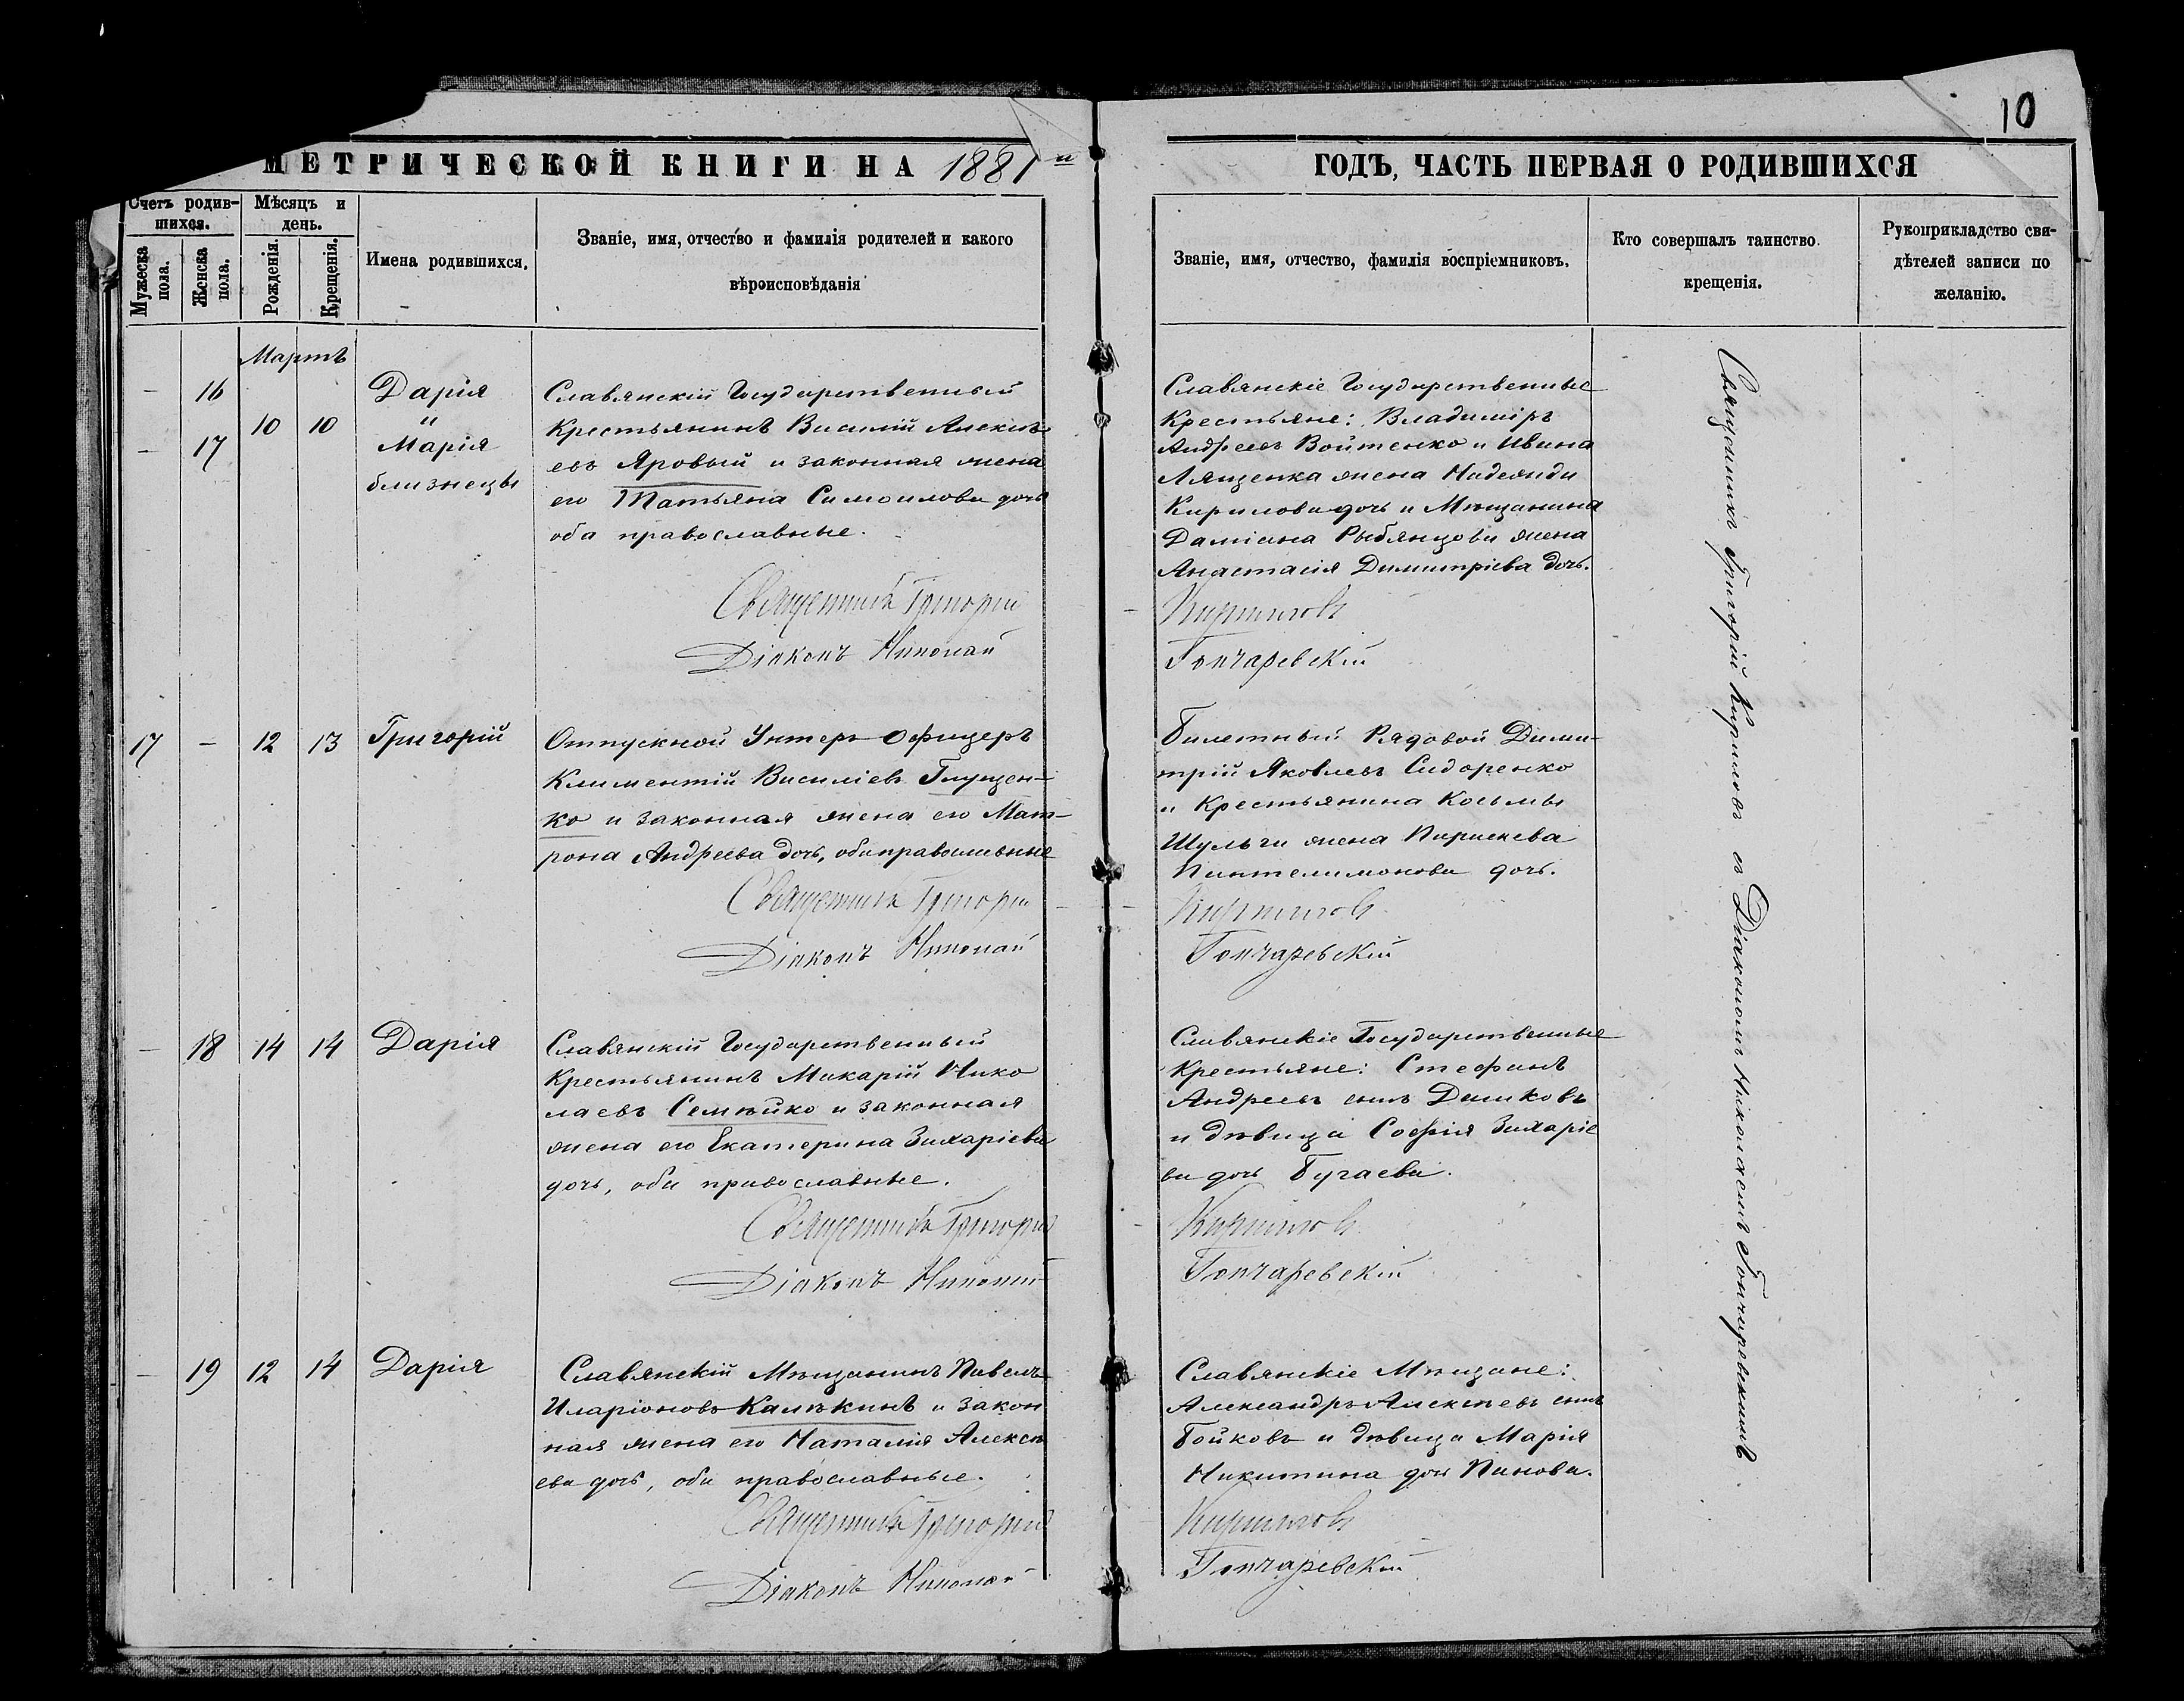 10
МЕТРИЧЕСКОЙ КНИГИ НА 1881й
ГОДЪ, ЧАСТЬ ПЕРВАЯ О РОДИВШИХСЯ
Счетъ родив-
шихся.
Мужеска
пола.
Женска
пола.
Мѣсяцъ и
день.
Рожденія.
Крещенія.
Имена родившихся.
Званіе, имя, отчество и фамилія родителей и какого
вѣроисповѣданія
Званіе, имя, отчество, фамилія воспріемниковъ.
Кто совершалъ таинство
крещенія.
Рукоприкладство сви-
дѣтелей записи по
желанію.
Мартъ
– 16
– 17
10 10
Дарія
и
Марія
близнецы
Славянскій Государственный
Крестьянинъ Василій Алексѣ-
евъ Яровый и законная жена
его Татьяна Самоилова дочь
оба православные.
Священникъ Григорій
Діаконъ Николай
Славянскіе Государственные
Крестьяне: Владиміръ
Андреевъ Войтенко и Ивана
Лященка жена Надежда
Кирилова дочь и Мѣщанина
Даміана Рыбянцова жена
Анастасія Димитріева дочь.
Кириловъ
Гончаревскій
17 – 12 13 Григорій
Отпускной Унтеръ-Офицеръ
Климентій Василіевъ Глущен-
ко и законная жена его Мат-
рона Андреева дочь, оба православные
Священникъ Григорій
Діаконъ Николай
Билетный Рядовой Дими-
трій Яковлевъ Сидоренко
и Крестьянина Косьмы
Шульги жена Параскева
Пантелимонова дочь.
Кириловъ
Гончаревскій
– 18 14 14 Дарія
Славянскій Государственный
Крестьянинъ Макарій Нико
лаевъ Семѣйко и законная
жена его Екатерина Захаріева
дочь, оба православные.
Священникъ Григорій
Діаконъ Николай
Славянскіе Государственные
Крестьяне: Стефанъ
Андреевъ сынъ Дашковъ
и дѣвица Софія Захаріе
ва дочь Бугаева.
Кириловъ
Гончаревскій
– 19 12 14 Дарія
Славянскій Мѣщанинъ Павелъ
Иларіоновъ Калѣкинъ и закон
ная жена его Наталія Алексѣ
ева дочь, оба православные.
Священникъ Григорій
Діаконъ Николай
Славянскіе Мѣщане:
Александръ Алексѣевъ сынъ
Бойковъ и дѣвица Марія
Никитина дочь Панова.
Кириловъ
Гончаревскій
Священникъ Григорій Кириловъ съ Діакономъ Николаемъ Гончаревскимъ